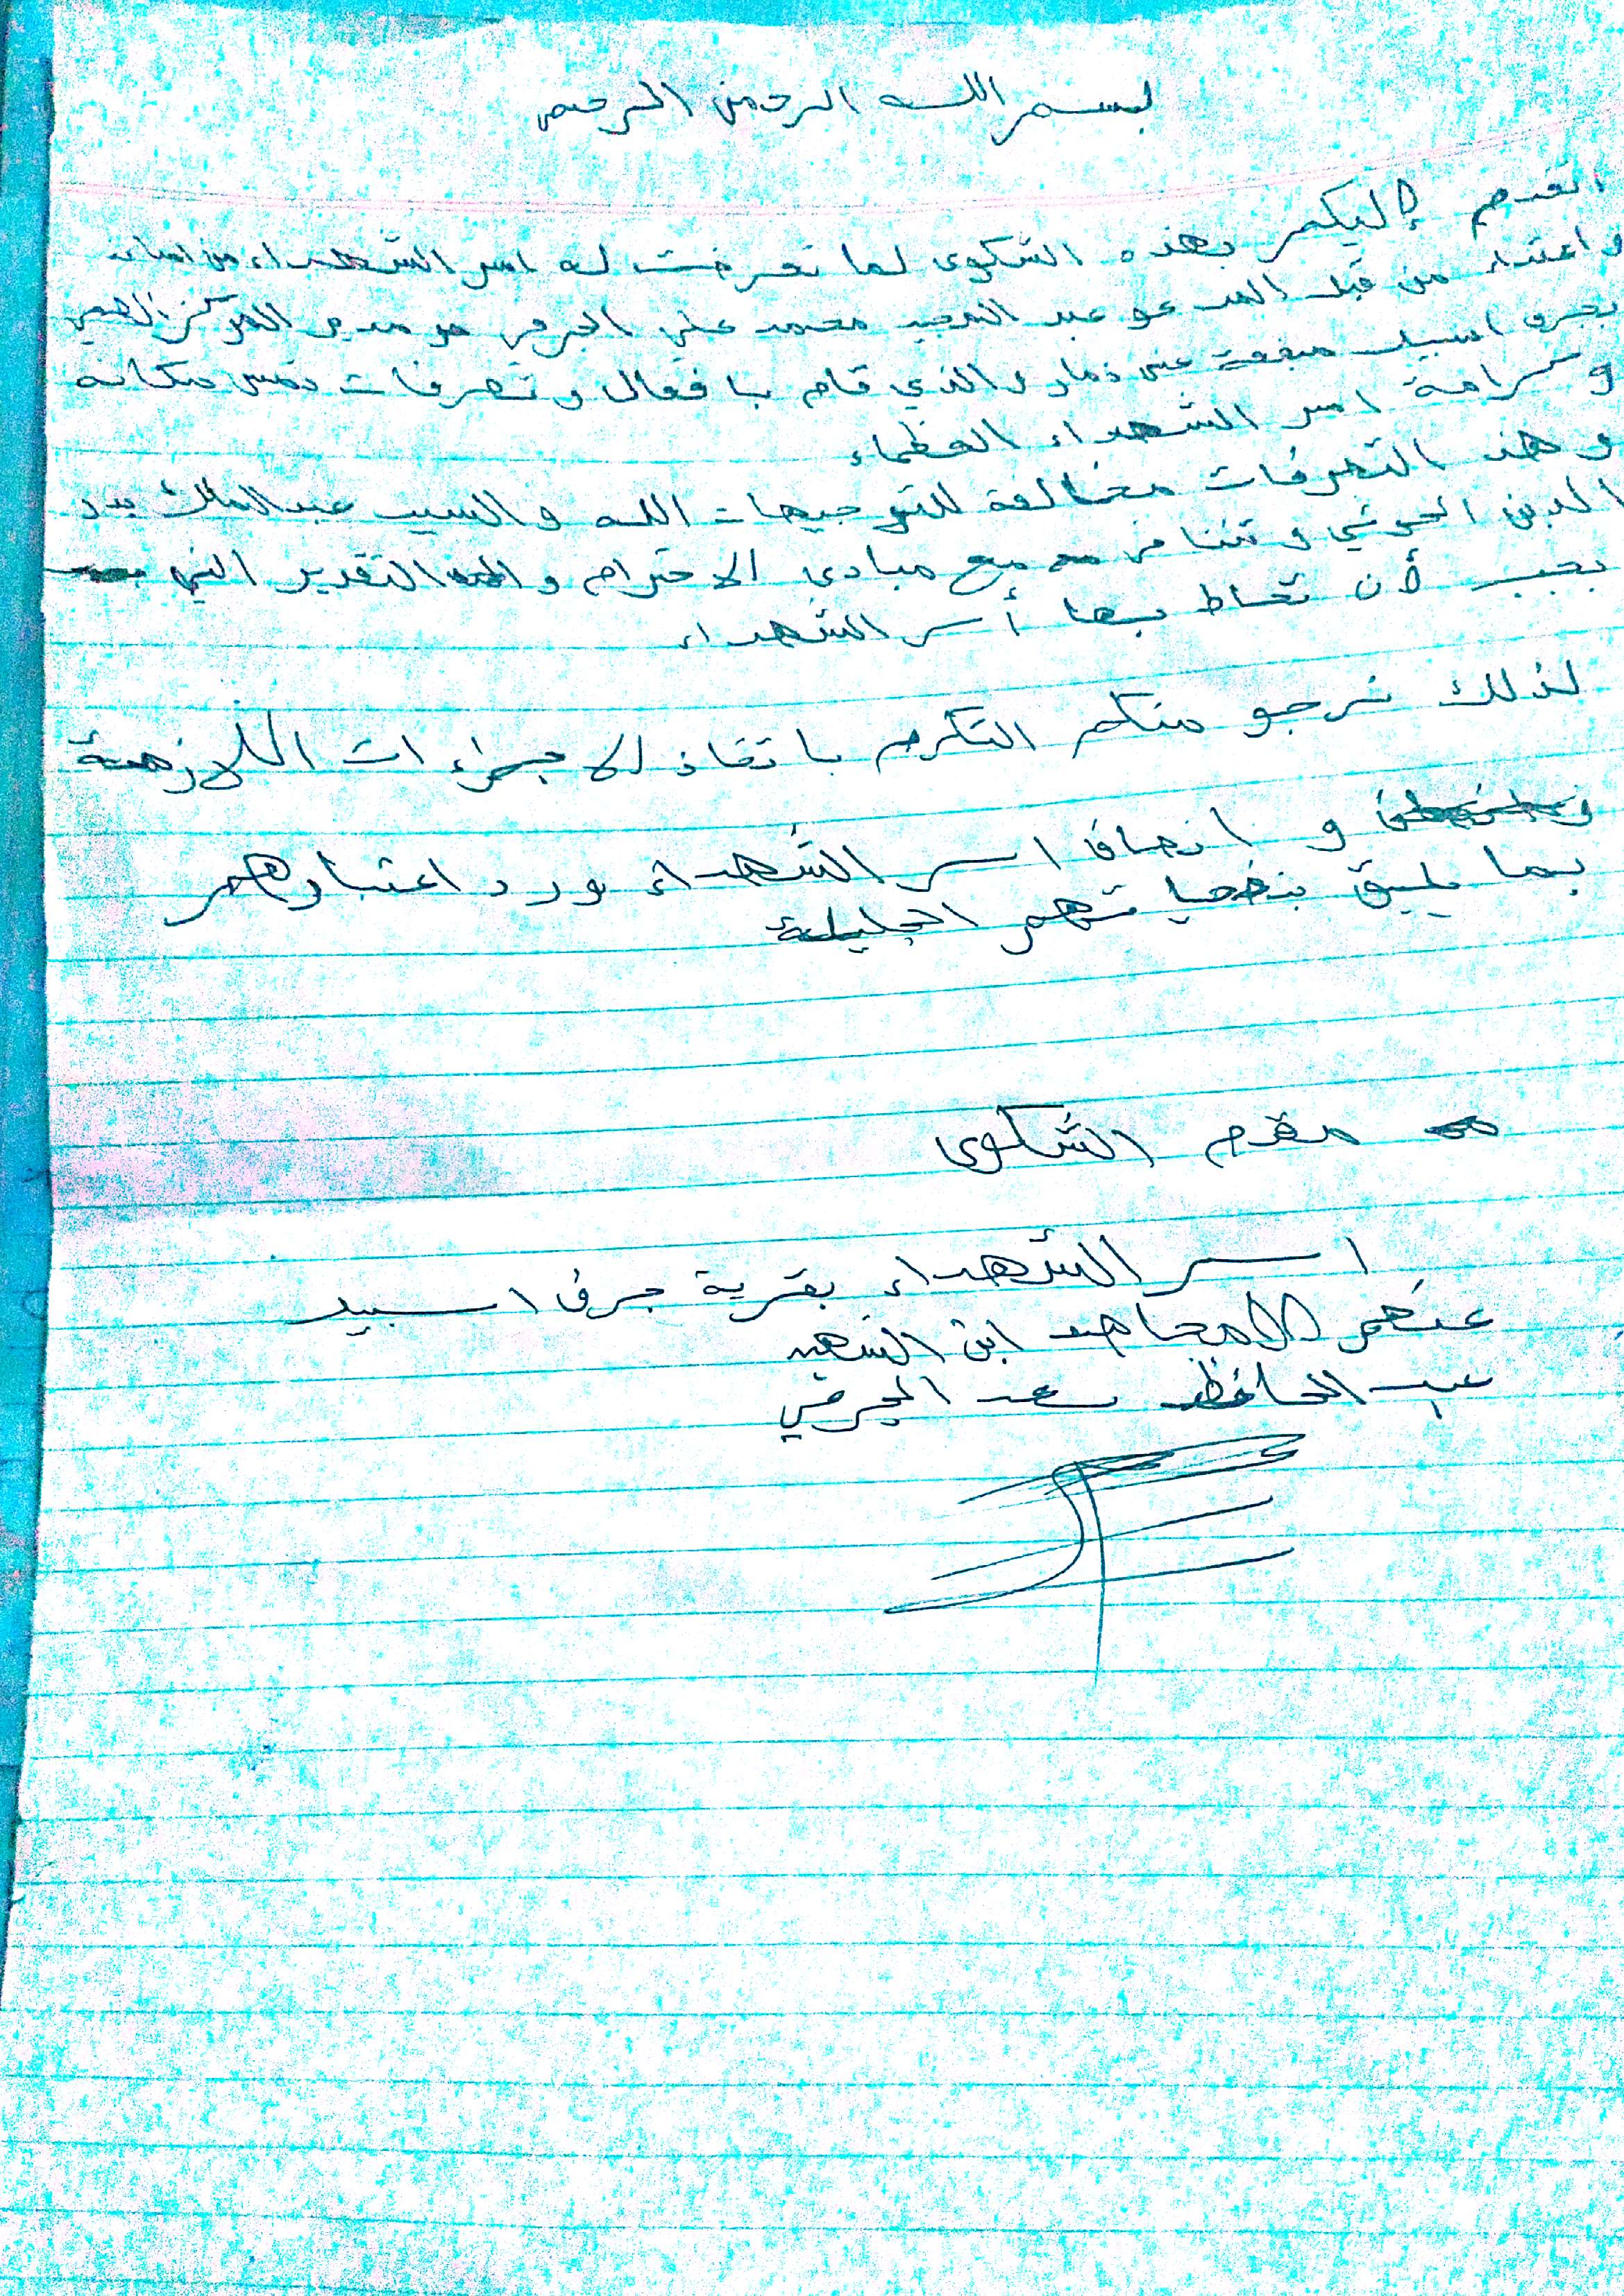 بسم الله الرحمن الرحيم
اتقدم إليكم بهذه الشكوى لما تعرضت له اسر الشهداء من
و اعتداء من قبل المدعو عبد المجيد محمد علي الجرفي هو مدير المركز الصحي
بجرف اسبيل عنس ذمار والذي قام بافعال وتصرفات تمس مكانه
وكرامة اسر الشهداء العظماء
وهذه التصرفات مخالفة للتوجيهات الله والسيد عبدالملك بدر
الدين الحوثي وتتنافى مع مبادئ الاحترام والتقدير التي
يجب لأن تحاط بها أسر الشهداء
لذلك نرجو منكم التكرم باتخاذ الاجراءات اللازمة
و انصاف اسر الشهداء ورد اعتبارهم
بما يليق بتضحياتهم الجليلة
مقدم الشكوى
اسر الشهداء بقرية جرف اسبيل
عنهم المجاهد ابن الشهيد
عبد الحافظ سعد الجرفي